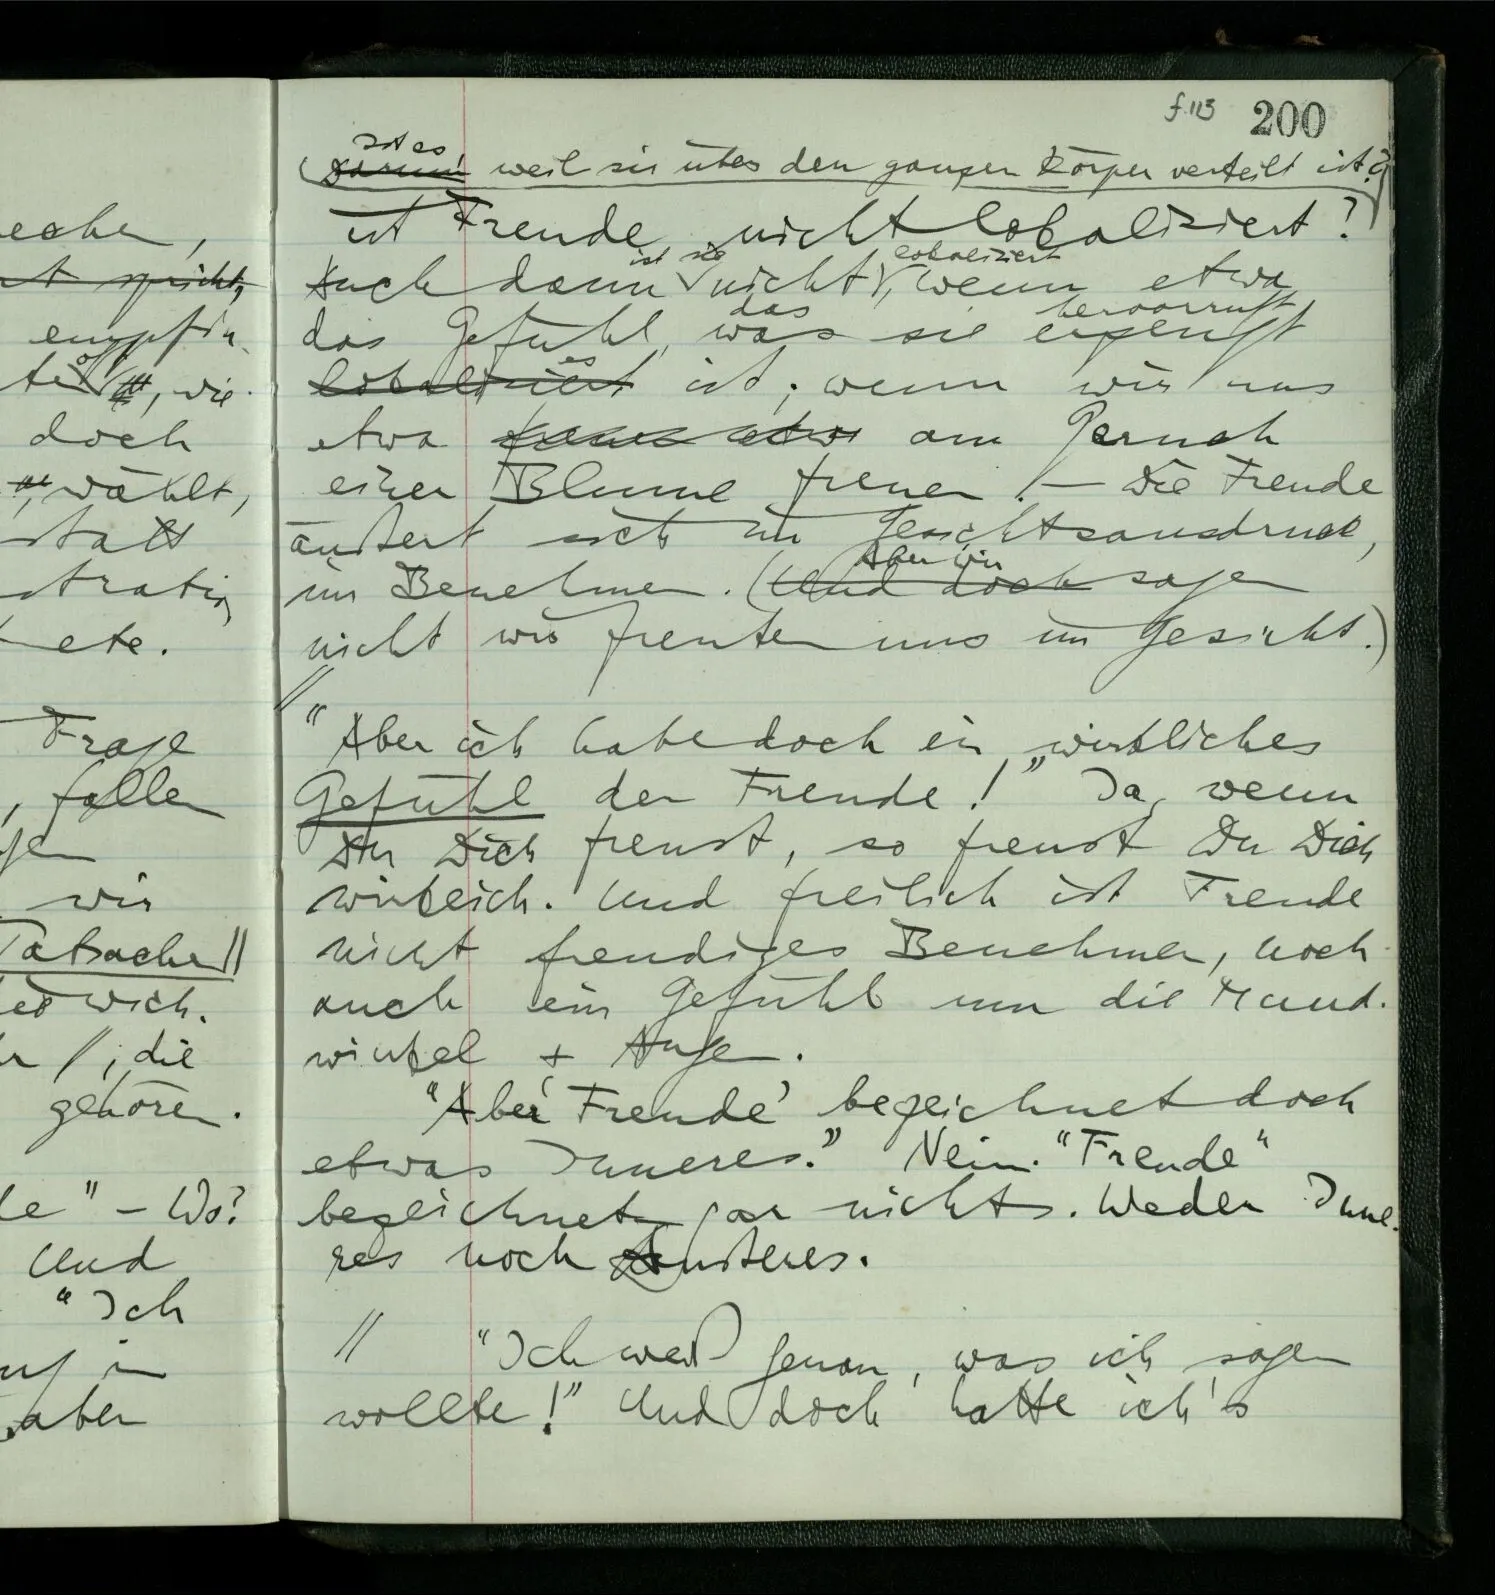 f.113 200
ist es
(Darum weil sie über den ganzen Körper verteilt ist?
ist Freude nicht lokalisiert?
ist sie lokalisiert
Auch dann nicht, wenn etwa
das hervorruft
das Gefühl, was sie erzeugt
es
lokalisiert ist; wenn wir uns
etwa am Geruch
einer Blume freuen. – Die Freude
äußert sich im Gesichtsausdruck,
Aber wir
im Benehmen. (Und doch sagen
nicht wir freuten uns im Gesicht.)
// "Aber ich habe doch ein wirkliches
Gefühl der Freude!" Ja, wenn
Du Dich freust, so freust Du Dich
wirklich. Und freilich ist Freude
nicht freudiges Benehmen, noch
auch ein Gefühl um die Mund-
winkel + Augen.
"Aber 'Freude' bezeichnet doch
etwas Inneres." Nein. "Freude"
bezeichnet gar nichts. Weder Inne-
res noch Äußeres.
// "Ich weiß genau, was ich sagen
wollte!" Und doch hatte ich's
eche,
t spricht,
empfin-
te, wie
doch
, wählt,
statt
stratio
ete.
Frage
, fallen
gen
wir
Tatsache //
wich.
//, die
gehören.
de" – Wo?
Und
"Ich
in
aber